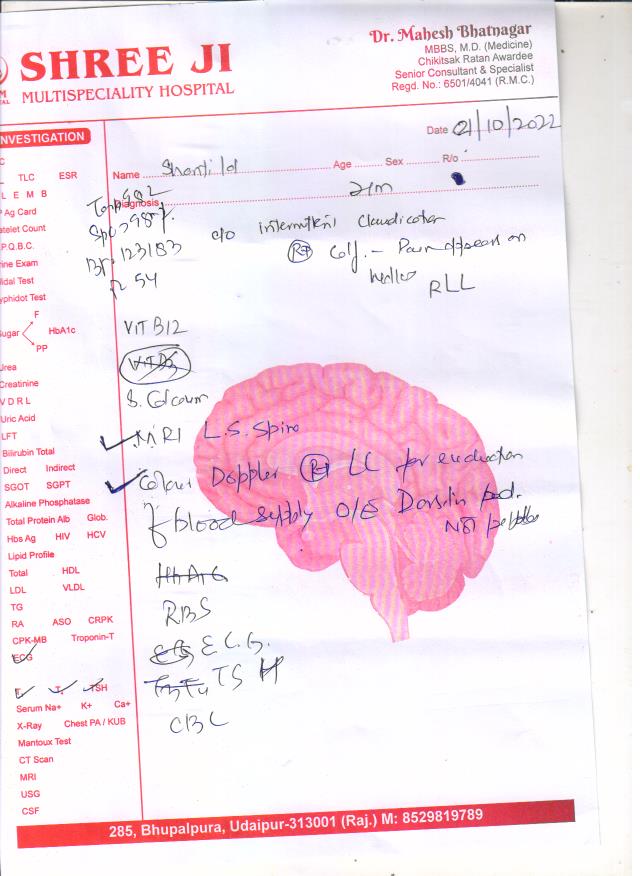 Dr. Mahesh Bhatnagar
MBBS, M.D. (Medicine)
Chikitsak Ratan Awardee
Senior Consultant & Specialist
Regd. No.: 6501/4041 (R.M.C.)
SHREE JI
MULTISPECIALITY HOSPITAL
Date 21/10/2022
Name Shantilal Age Sex R/o
Diagnosis
Temp 98.2
Spo2 98%
BP. 123/83
P 54
c/o intermittent Claudication
Rt Calf - Pain appears on
RLL
VIT B12
VIT D3
S. Calcium
MRI L.S. Spine
Colour Doppler Rt LL for evaluation
of blood supply O/E Dorsalis ped.
Not palpable
HbA1C
RBS
E.C.G.
T3 T4 TSH
CBC
INVESTIGATION
TLC ESR
L E M B
P Ag Card
atelet Count
P.Q.B.C.
rine Exam
idal Test
yphidot Test
F
ugar HbA1c
PP
Urea
Creatinine
V D R L
Uric Acid
LFT
Bilirubin Total
Direct Indirect
SGOT SGPT
Alkaline Phosphatase
Total Protein Alb Glob.
Hbs Ag HIV HCV
Lipid Profile
Total HDL
LDL VLDL
TG
RA ASO CRPK
CPK-MB Troponin-T
ECG
TSH
Serum Na+ K+ Ca+
X-Ray Chest PA / KUB
Mantoux Test
CT Scan
MRI
USG
CSF
285, Bhupalpura, Udaipur-313001 (Raj.) M: 8529819789